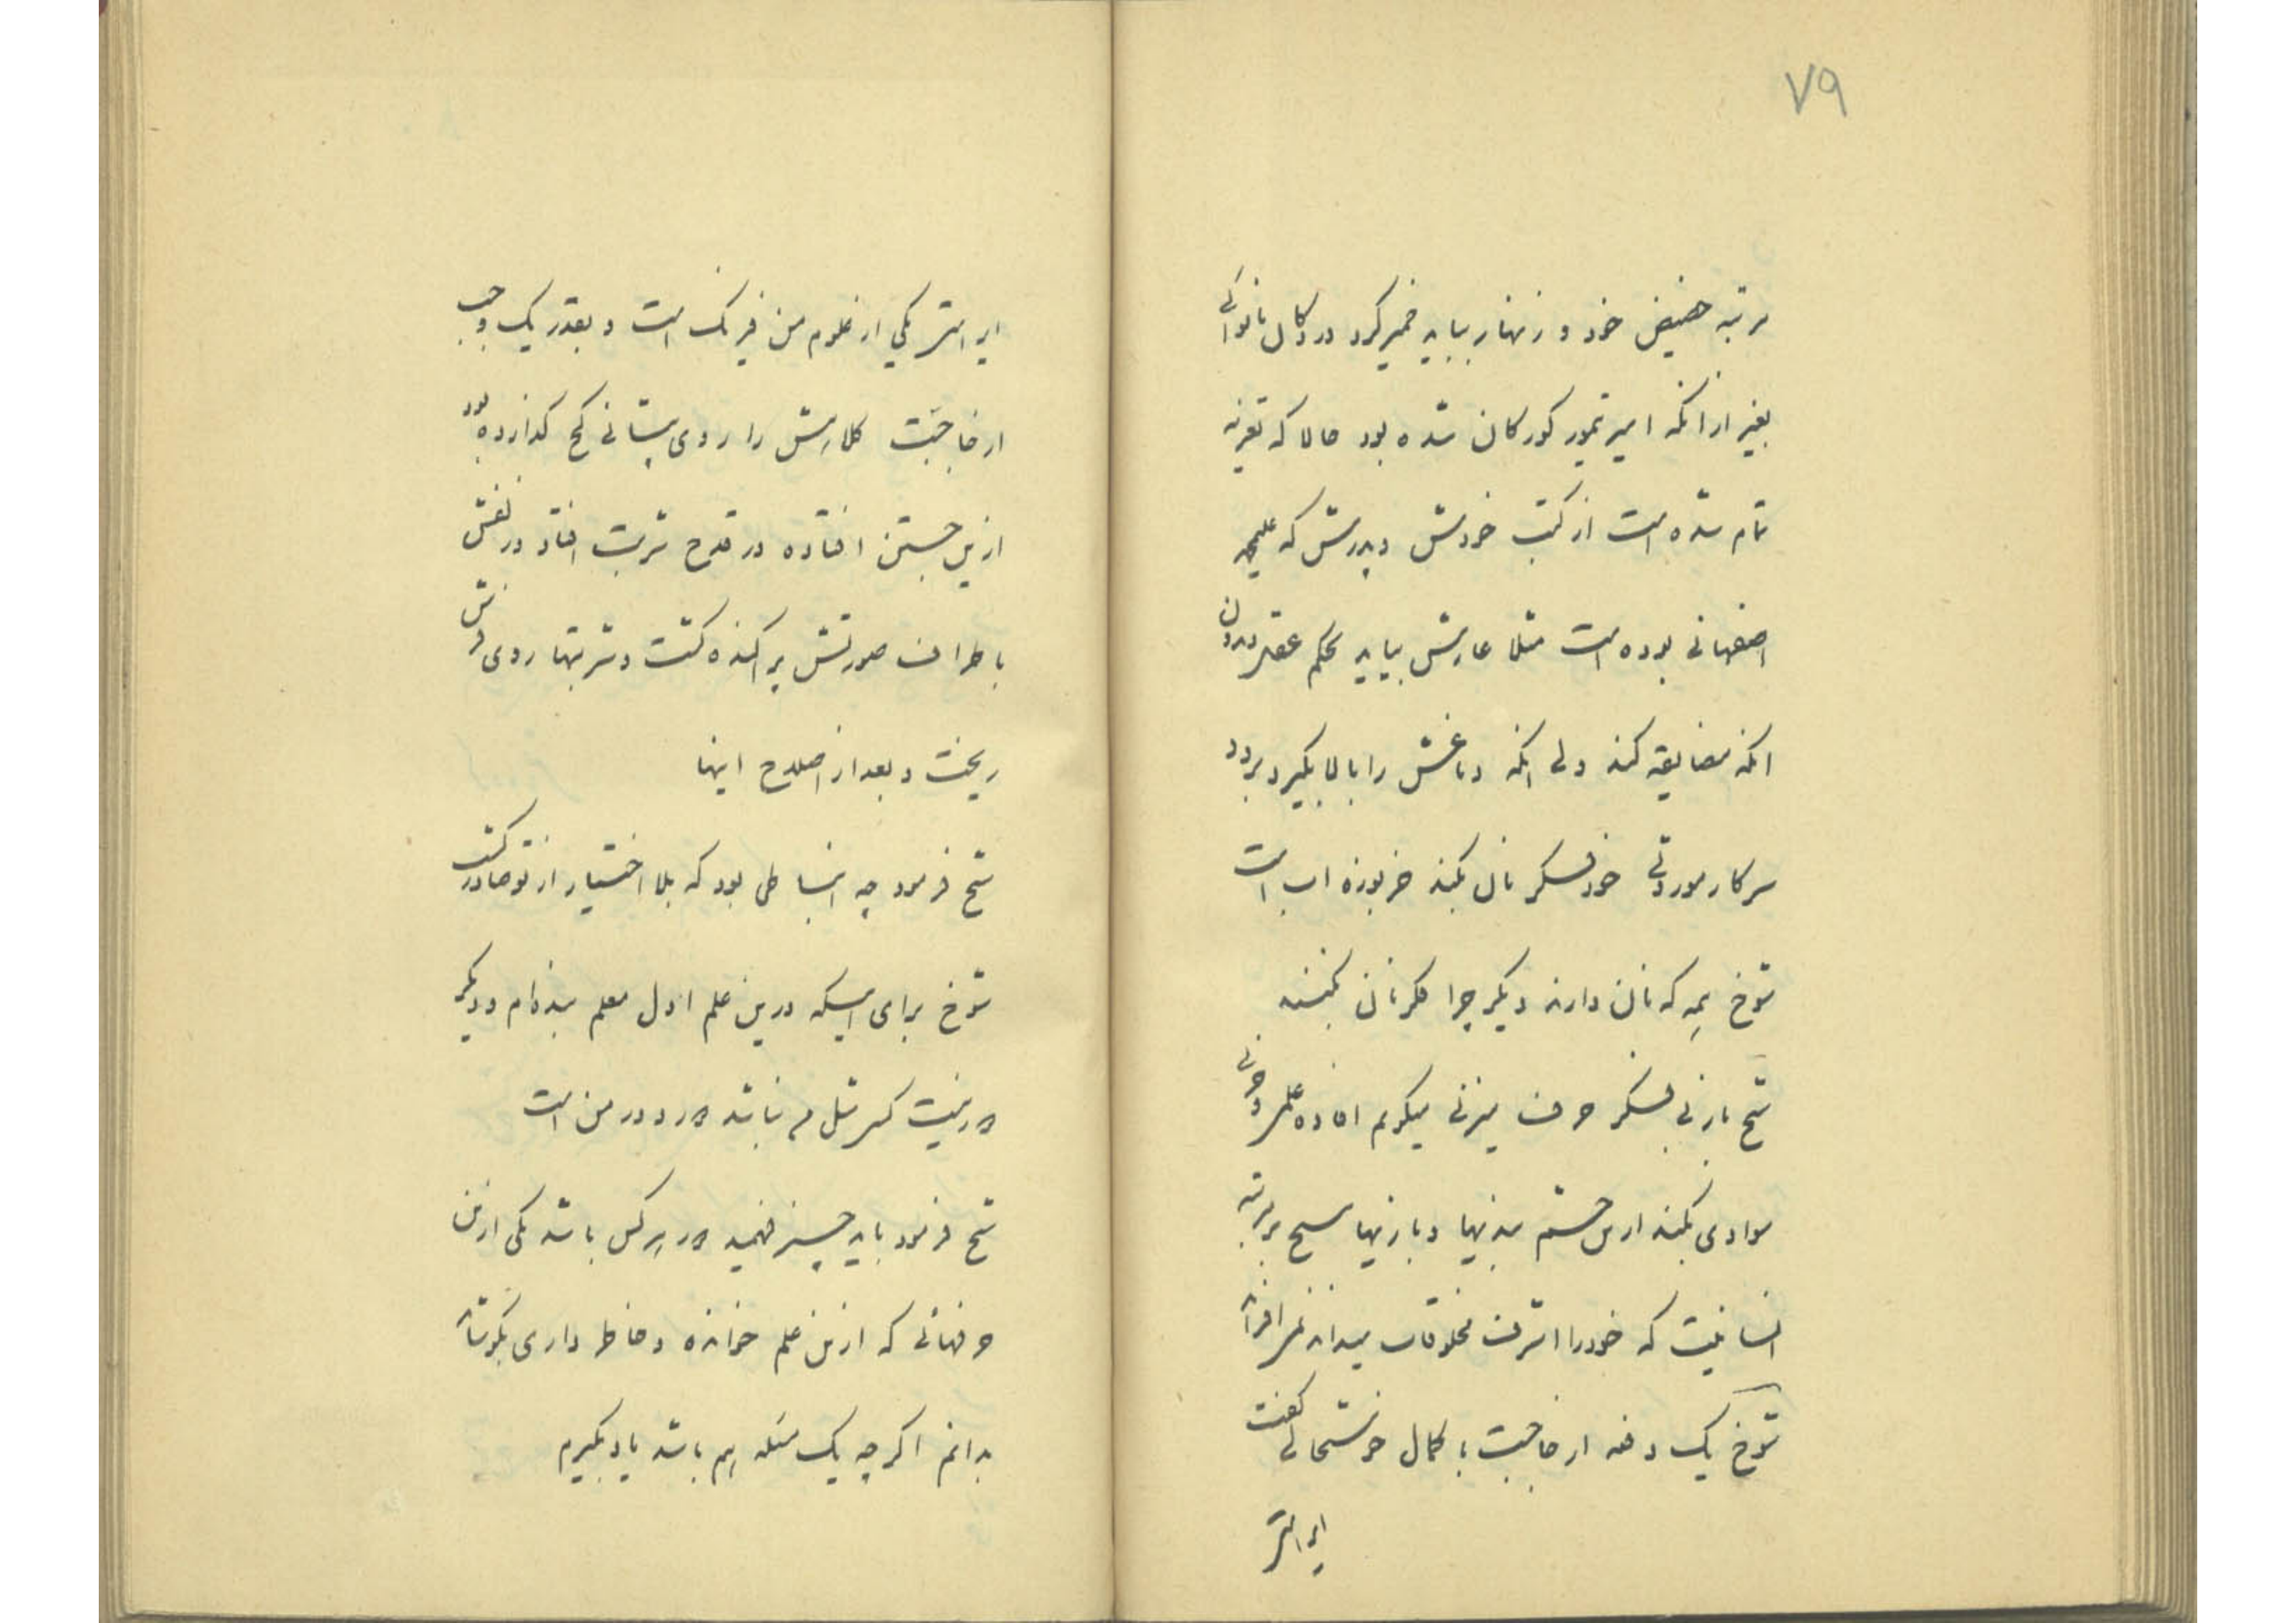 ۷۹
مرتبه حضیض خود و زنهار بباید خمیر کرد در دکان نانوائی
بغیر از انکه امیر تیمور کورکان شده بود حالا که تعزیه
تمام شده است از کتب خودش و پدرش که
اصفهانی بوده است مثلا عارش بیاید بحکم
انکه مضایقه کند ولی انکه دماغش را بالا بگیرد برود
سر کار موروثی خود فکر نان بکند خربوزه اب است
شوخ همه که نان دارند دیکر چرا فکر نان بکنند
شیخ باز بی فکر حرف میزنی میکویم افاده
موادی بکند ازین چشم بدنیها و بازیها بمرتبه
انسانیت که خود را اشرف مخلوقات میداند
شوخ یک دفعه از جا جست با کمال خوشحالی کفت
ایر استر
ایر استر یکی از علوم من فیزیک است و بقدر یک وجب
از جا جست کلاهش را روی پیشانی کج کذارده بود
ازین جستن افتاده در قدح شربت افتاد و زلفش
باطراف صورتش پراکنده کشت و شربتها روی فرش
ریخت و بعد از اصلاح اینها
شیخ فرمود چه انبساطی بود که بلا اختیار از تو صادر کشت
شوخ برای اینکه درین علم اول معلم بنده‌ام و دیکر
نیست کسی مثل من باشد در من است
شیخ فرمود باید چیز فهمید هر کس باشد یکی ازین
حرفهائی که ازین علم خوانده و خاطر داری بکو
بدانم اکر چه یک مسئله هم باشد یاد بکیرم